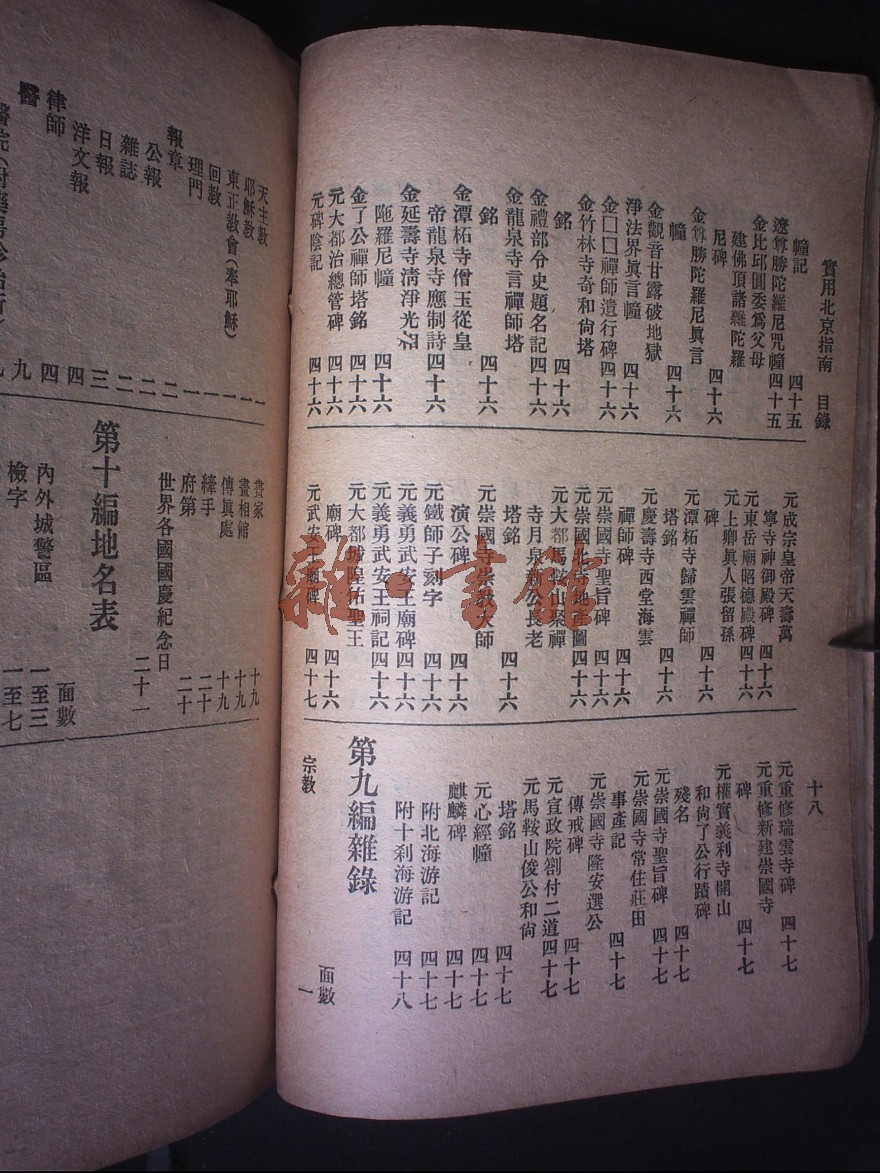 實用北京指南 目錄
十八
幢記 四十五
遼尊勝陀羅尼咒幢 四十五
金比邱圓委爲父母
建佛頂諸雜陀羅
尼碑 四十六
金尊勝陀羅尼眞言
幢 四十六
金觀音甘露破地獄
淨法界眞言幢 四十六
金囗囗禪師遺行碑 四十六
金竹林寺奇和尙塔
銘 四十六
金禮部令史題名記 四十六
金龍泉寺言禪師塔
銘 四十六
金潭柘寺僧玉從皇
帝龍泉寺應制詩 四十六
金延壽寺淸淨光
陁羅尼幢 四十六
金了公禪師塔銘 四十六
元大都治總管碑 四十六
元碑陰記 四十六
元成宗皇帝天壽萬
寧寺神御殿碑 四十六
元東岳廟昭德殿碑 四十六
元上卿眞人張留孫
碑 四十六
元潭柘寺歸雲禪師
塔銘 四十六
元慶壽寺西堂海雲
禪師碑 四十六
元崇國寺聖旨碑 四十六
元崇國北寺地產圖 四十六
元大都馬鞍山聚禪
寺月泉新公長老
塔銘 四十六
元崇國寺崇敎大師
演公碑 四十六
元鐵師子刻字 四十六
元義勇武安王廟碑 四十六
元義勇武安王祠記 四十六
元大都城隍佑聖王
廟碑 四十六
元武安王廟碑 四十七
元重修瑞雲寺碑 四十七
元重修新建崇國寺
碑 四十七
元權實義利寺開山
和尙了公行蹟碑 四十七
殘名 四十七
元崇國寺聖旨碑 四十七
元崇國寺常住莊田
事產記 四十七
元崇國寺隆安選公
傳戒碑 四十七
元宣政院劄付二道 四十七
元馬鞍山俊公和尙
塔銘 四十七
元心經幢 四十七
麒麟碑 四十七
附北海游記 四十七
附十刹海游記 四十八
第九編雜錄
面數
宗敎 一
天主敎 一
耶穌敎 一
東正敎會(奉耶穌) 一
回敎 一
理門 一
報章 二
公報 二
雜誌 二
日報 三
洋文報 四
律師 四
醫 九
畫家 十九
畫相館 十九
傳眞處 十九
縴手 二十
府第 二十
世界各國國慶紀念日 二十一
第十編地名表
面數
內外城警區 一至三
檢字 一至七
雜·書館